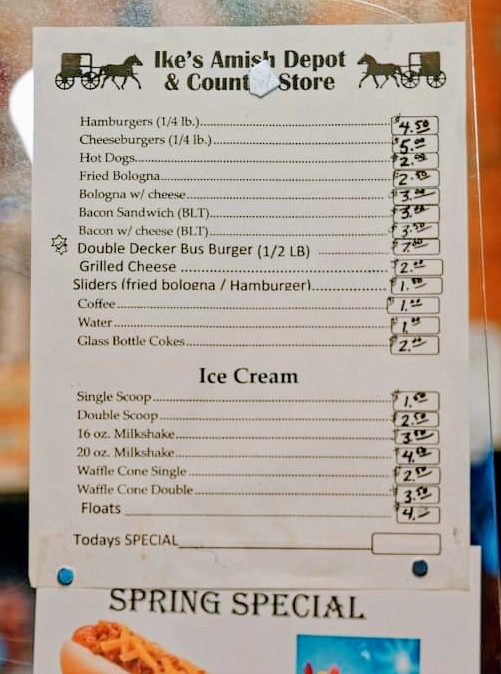 Ike's Amish Depot
& Count Store
Hamburgers (1/4 lb.) $4.50
Cheeseburgers (1/4 lb.) $5.00
Hot Dogs $2.00
Fried Bologna $2.50
Bologna w/ cheese $3.00
Bacon Sandwich (BLT) $3.00
Bacon w/ cheese (BLT) $3.50
Double Decker Bus Burger (1/2 LB) $7.50
Grilled Cheese $2.00
Sliders (fried bologna / Hamburger) $1.50
Coffee $1.00
Water $1.00
Glass Bottle Cokes $2.00
Ice Cream
Single Scoop $1.50
Double Scoop $2.50
16 oz. Milkshake $3.50
20 oz. Milkshake $4.00
Waffle Cone Single $2.50
Waffle Cone Double $3.50
Floats $4.-
Todays SPECIAL
SPRING SPECIAL